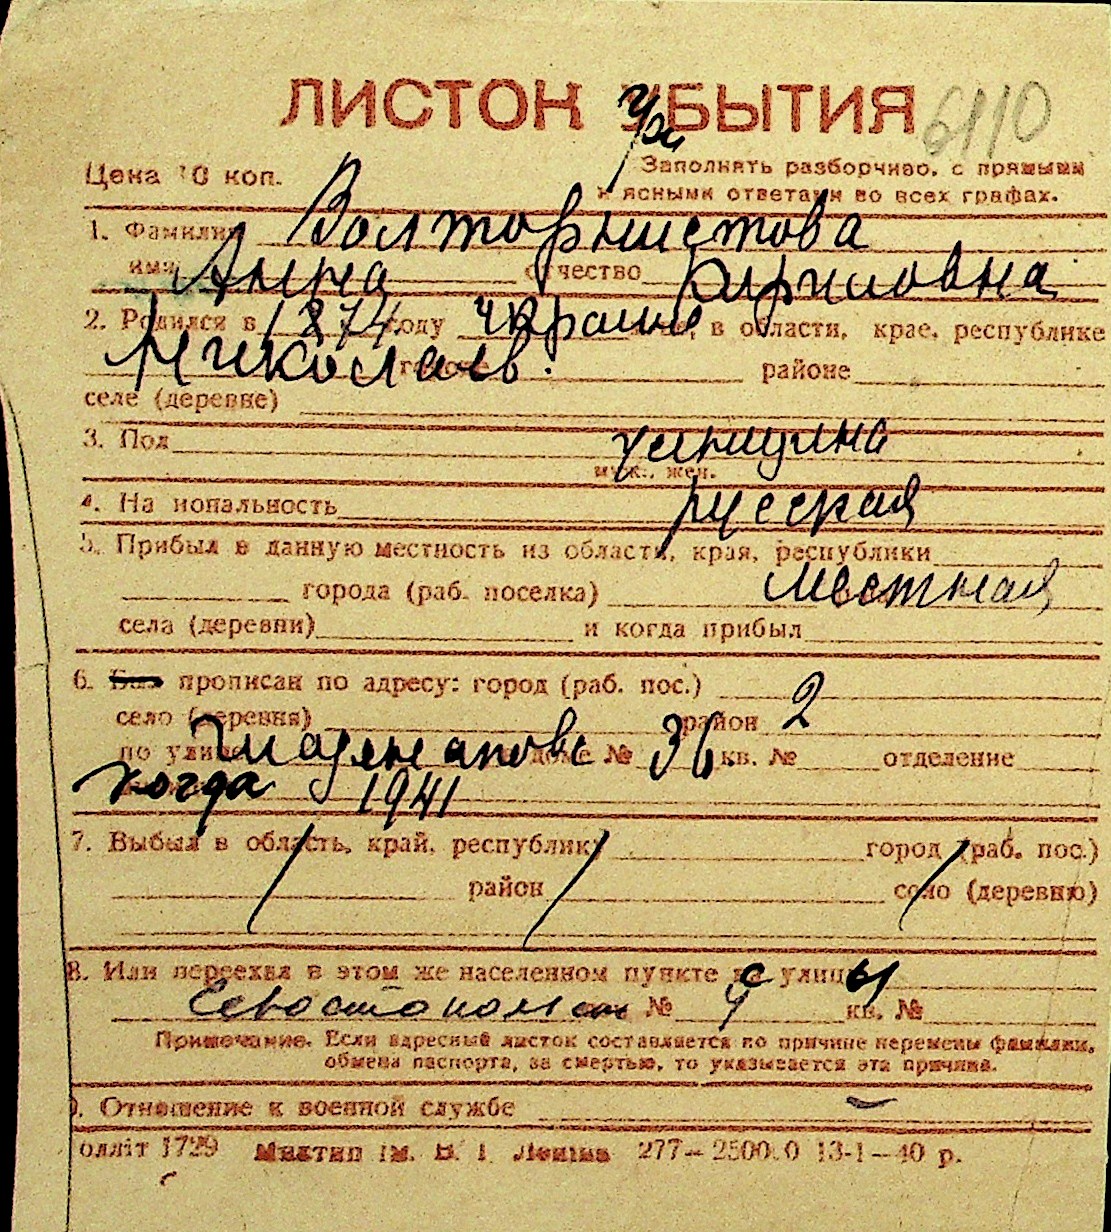 ЛИСТОК УБЫТИЯ 6110
Цена 10 коп. Заполнять разборчиво, с прямыми
и ясными ответами во всех графах.
1. Фамилия Волторнистова
имя Анна отчество Кириловна
2. Родился в 1874 году Украине в области, крае, республике
Николаев. городе районе
селе (деревне)
3. Пол женщина
муж., жен.
4. Национальность русская
5. Прибыл в данную местность из области, края, республики
города (раб. поселка) местная
села (деревни) и когда прибыл
6. Был прописан по адресу: город (раб. пос.)
село (деревня) район 2
по улице доме № 36 кв. № отделение
когда 1941
7. Выбыл в область, край, республику город (раб. пос.)
район село (деревню)
8. Или переехал в этом же населенном пункте с улицы
Севастопол № 4 кв. №
Примечание. Если адресный листок составляется по причине перемены фамилии,
обмена паспорта, за смертью, то указывается эта причина.
9. Отношение к военной службе —
олліт 1729 Миктип ім. В. І. Леніна 277—2500.0 13-1—40 р.